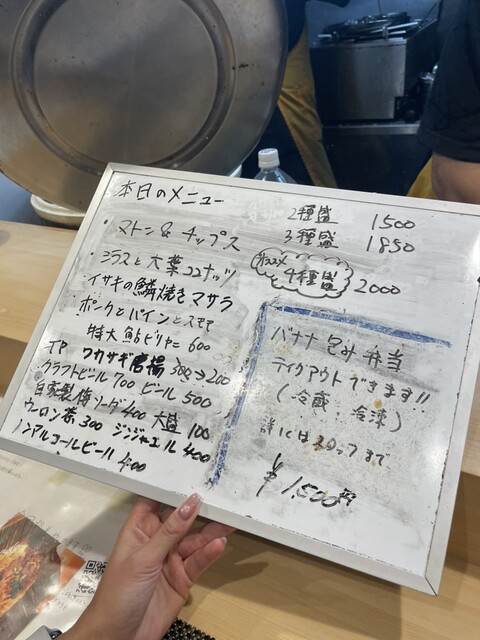 本日のメニュー
・マトン&チップス
・シラスと大葉ココナッツ
・イサキの鱗焼きマサラ
・ポークとパインとスモモ
特大鮎ビリヤニ 600
ワカサギ唐揚 300→200
クラフトビール 700 ビール 500
自家製梅ソーダ 400 大盛 100
ウーロン茶 300 ジンジャエール 400
ノンアルコールビール 400
2種盛 1500
3種盛 1850
オススメ 4種盛 2000
バナナ包み弁当
テイクアウトできます!!
(冷蔵・冷凍)
詳しくはスタッフまで
¥1,500円